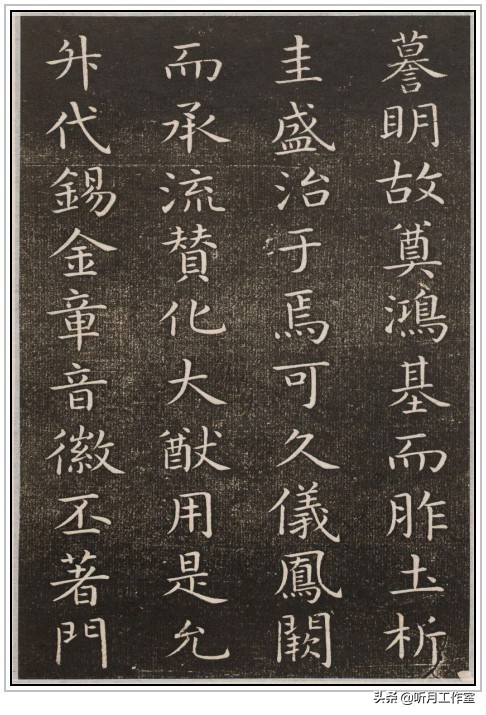 謩明故奠鴻基而胙土析
圭盛治于焉可久儀鳳闕
而承流賛化大猷用是允
升代錫金章音徽丕著門
头条 @听月工作室